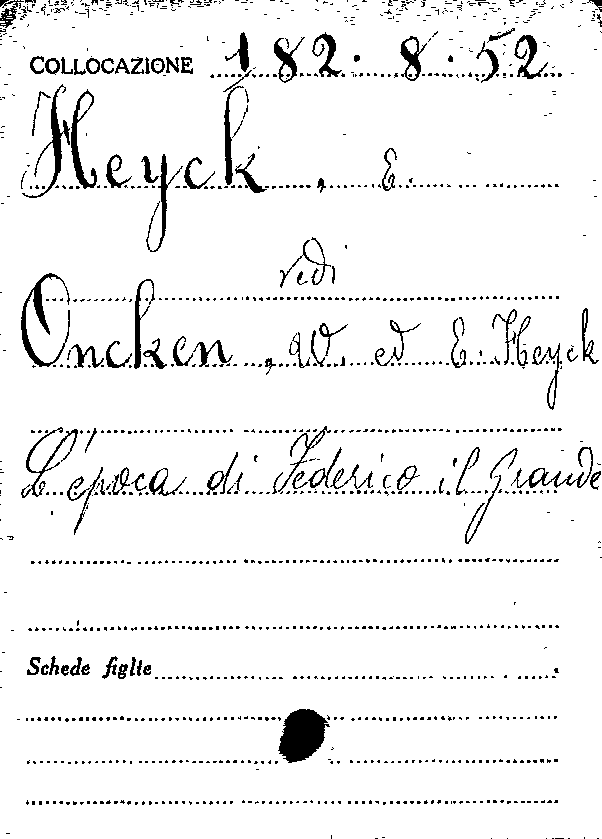 COLLOCAZIONE 182. 8. 52
Heyck, E.
vedi
Oncken, W. ed E. Heyck
L'época di Federico il Grande
Schede figlie